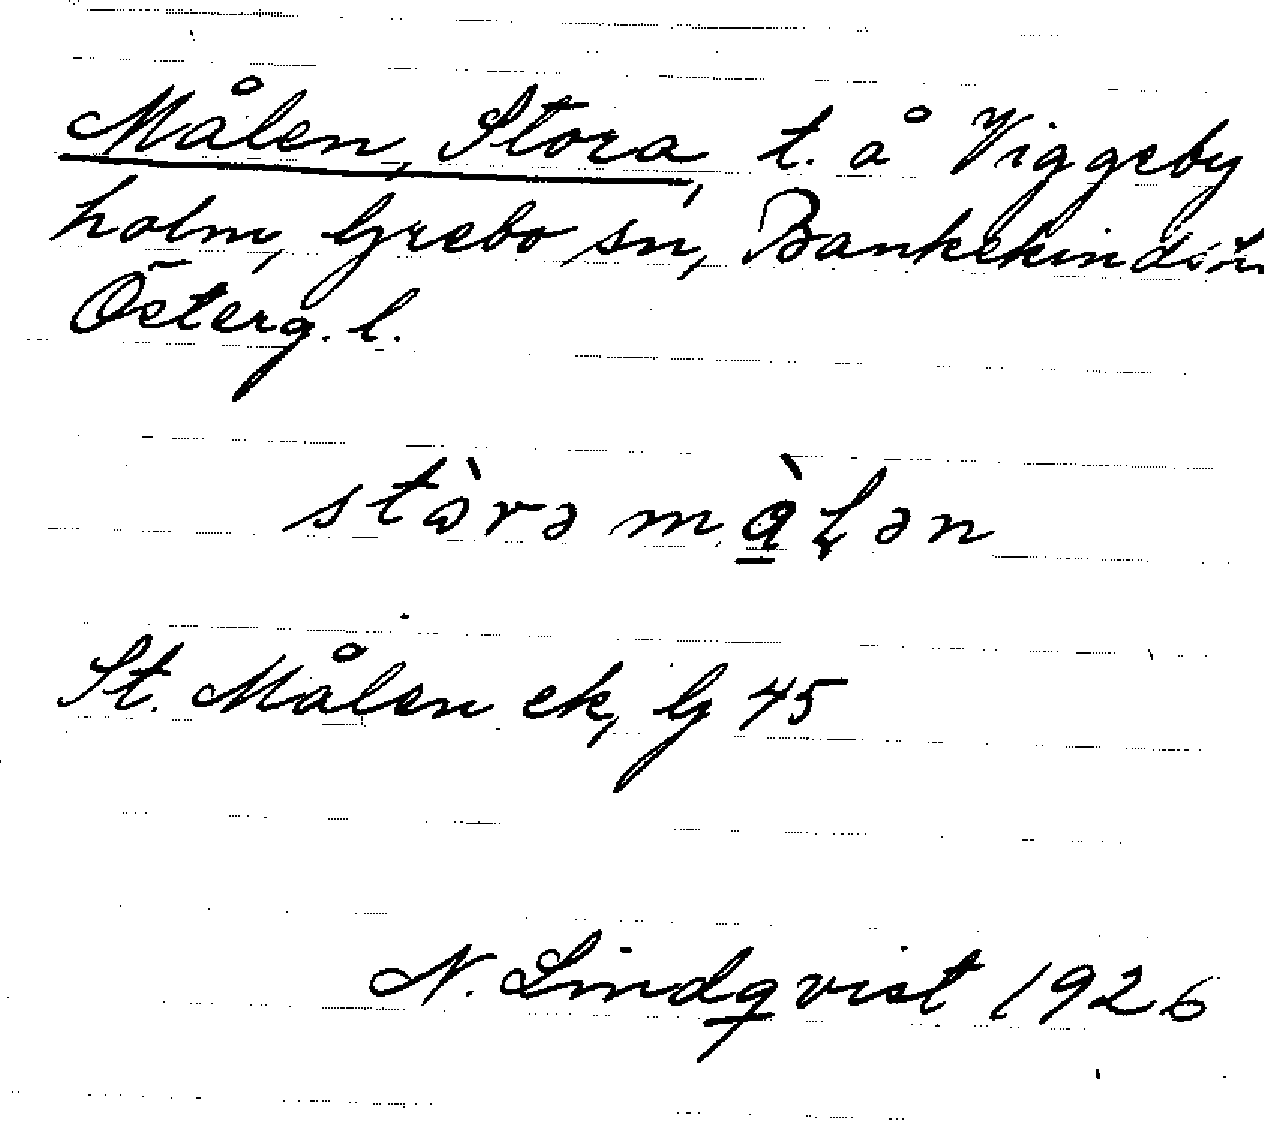 Målen, Stora, t. å Viggeby
holm, Grebo sn, Bankekinds hd
Österg. l.
stɷ̀rə mὰ̲ɭən
St. Målen ek, G 45
N. Lindqvist 1926